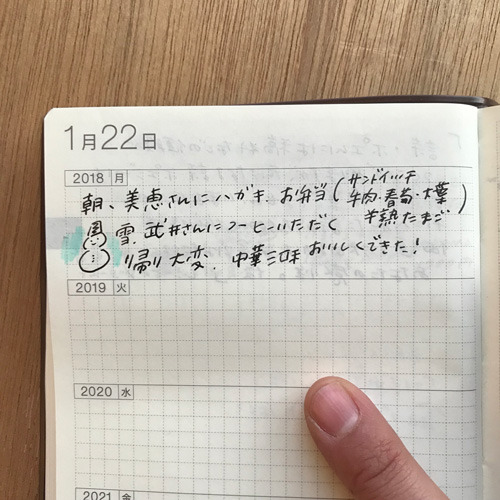 1月22日
2018 月
朝、美恵さんにハガキ。お弁当(サンドイッチ
牛肉・春菊・大葉
半熟たまご)
雪。武井さんにコーヒーいただく
帰り大変。中華三昧おいしくできた!
2019 火
2020 水
2021 金